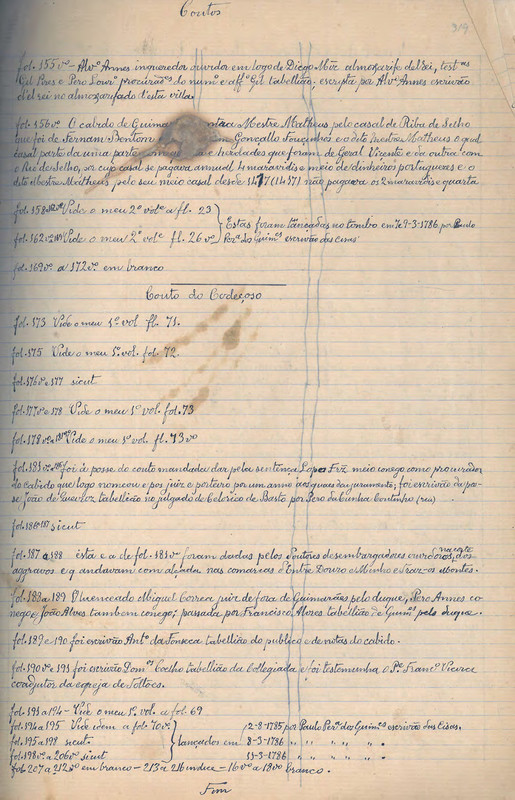 Coutos
319
fol. 155 vº - Alvº Annes inqueredor ouvidor em logo de Diego Mrz almozarife del rei, testas
Gil Pires e Pero Lourº procurães do numº e affº Gil tabellião; escripta por Alvº Annes escrivão
d'el rei no almozarifado d'esta villa.
fol. 156 vº O cabido de Guima Mestre Matheus pelo casal de Riba de Selho
que foi de Fernam Bentom Gonçallo Fouçinha e o dito Mestre Matheus o qual
casal parte da uma parte e herdades que foram de Geral Vicente e da outra com
o Rio de Selho, se cujo casal se pagava annual 4 maravidis e meio de dinheiros portuguezes e o
dito Mestre Matheus pelo seu meio casal desde 1417 (1477) não pagava os 2 maravidis e quarta
fol. 158 Vide o meu 2º volº a fl. 23
Estas foram lançadas no tombo em 7 e 9-3-1786 por Paulo
fol. 162 Vide o meu 2º volº fl. 26 vº
Perª do Guimes escrivão das cisas
fol. 169 vº a 172 vº em branco
Couto do Codeçoso
fol. 173 Vide o meu 1º vol fl. 71.
fol. 175 Vide o meu 1º vol. fol. 72.
fol. 176 vº e 177 sicut
fol. 177 vº e 178 Vide o meu 1º vol. fol. 73
fol. 178 vº Vide o meu 1º vol. fl. 73 vº
fol. 181 vº foi a posse do couto mandada dar pela sentença Lopo Frz meio conego como procurador
do cabido que logo nomeou e pos juiz e porteiro por um anno aos quaes deu juramento; foi escrivão da pos-
se João de Queiroz tabellião no julgado de Celorico de Basto por Pero da Cunha Coutinho
fol. 186 187 sicut
fol. 187 a 188 esta e a de fol. 181 vº foram dadas pelos doutores desembargadores ouvidores, dos
aggravos e q andavam com alçada nas comarcas d'Entre Douro e Minho e Traz-os Montes.
fol. 188 a 189 O licenceado Miguel Correa juiz de fora de Guimarães pelo duque, Pero Annes co-
nego e João Alves tambem conego; passada por Francisco Alvres tabellião de Guimes pelo duque.
fol. 189 e 190 foi escrivão Antº da Fonseca tabellião do publico e de notas do cabido.
fol. 190 vº e 191 foi escrivão Domos Coelho tabellião da Collegiada e foi testemunha o Pe Francº Vieira
coadjutor da egreja de Tolões.
fol. 191 a 194 - Vide o meu 1º vol. a fol. 69
fol. 194 a 195 Vide idem a fol. 70 vº 2-8-1785 por Paulo Perª dos Guimes escrivão das Cisas.
fol. 195 a 198 sicut lançados em 8-3-1786 " " " " " .
fol. 198 vº a 206 vº sicut 11-3-1786 " " " " " .
fol. 207 a 212 vº em branco - 213 a 216 indice - 16 vº a 18 vº branco.
Fim